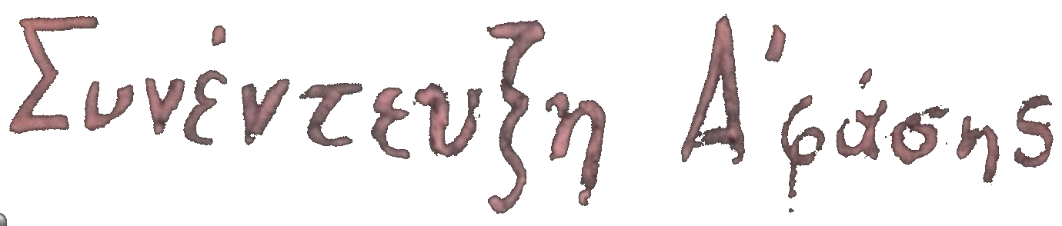 Συνέντευξη Α' φάσης